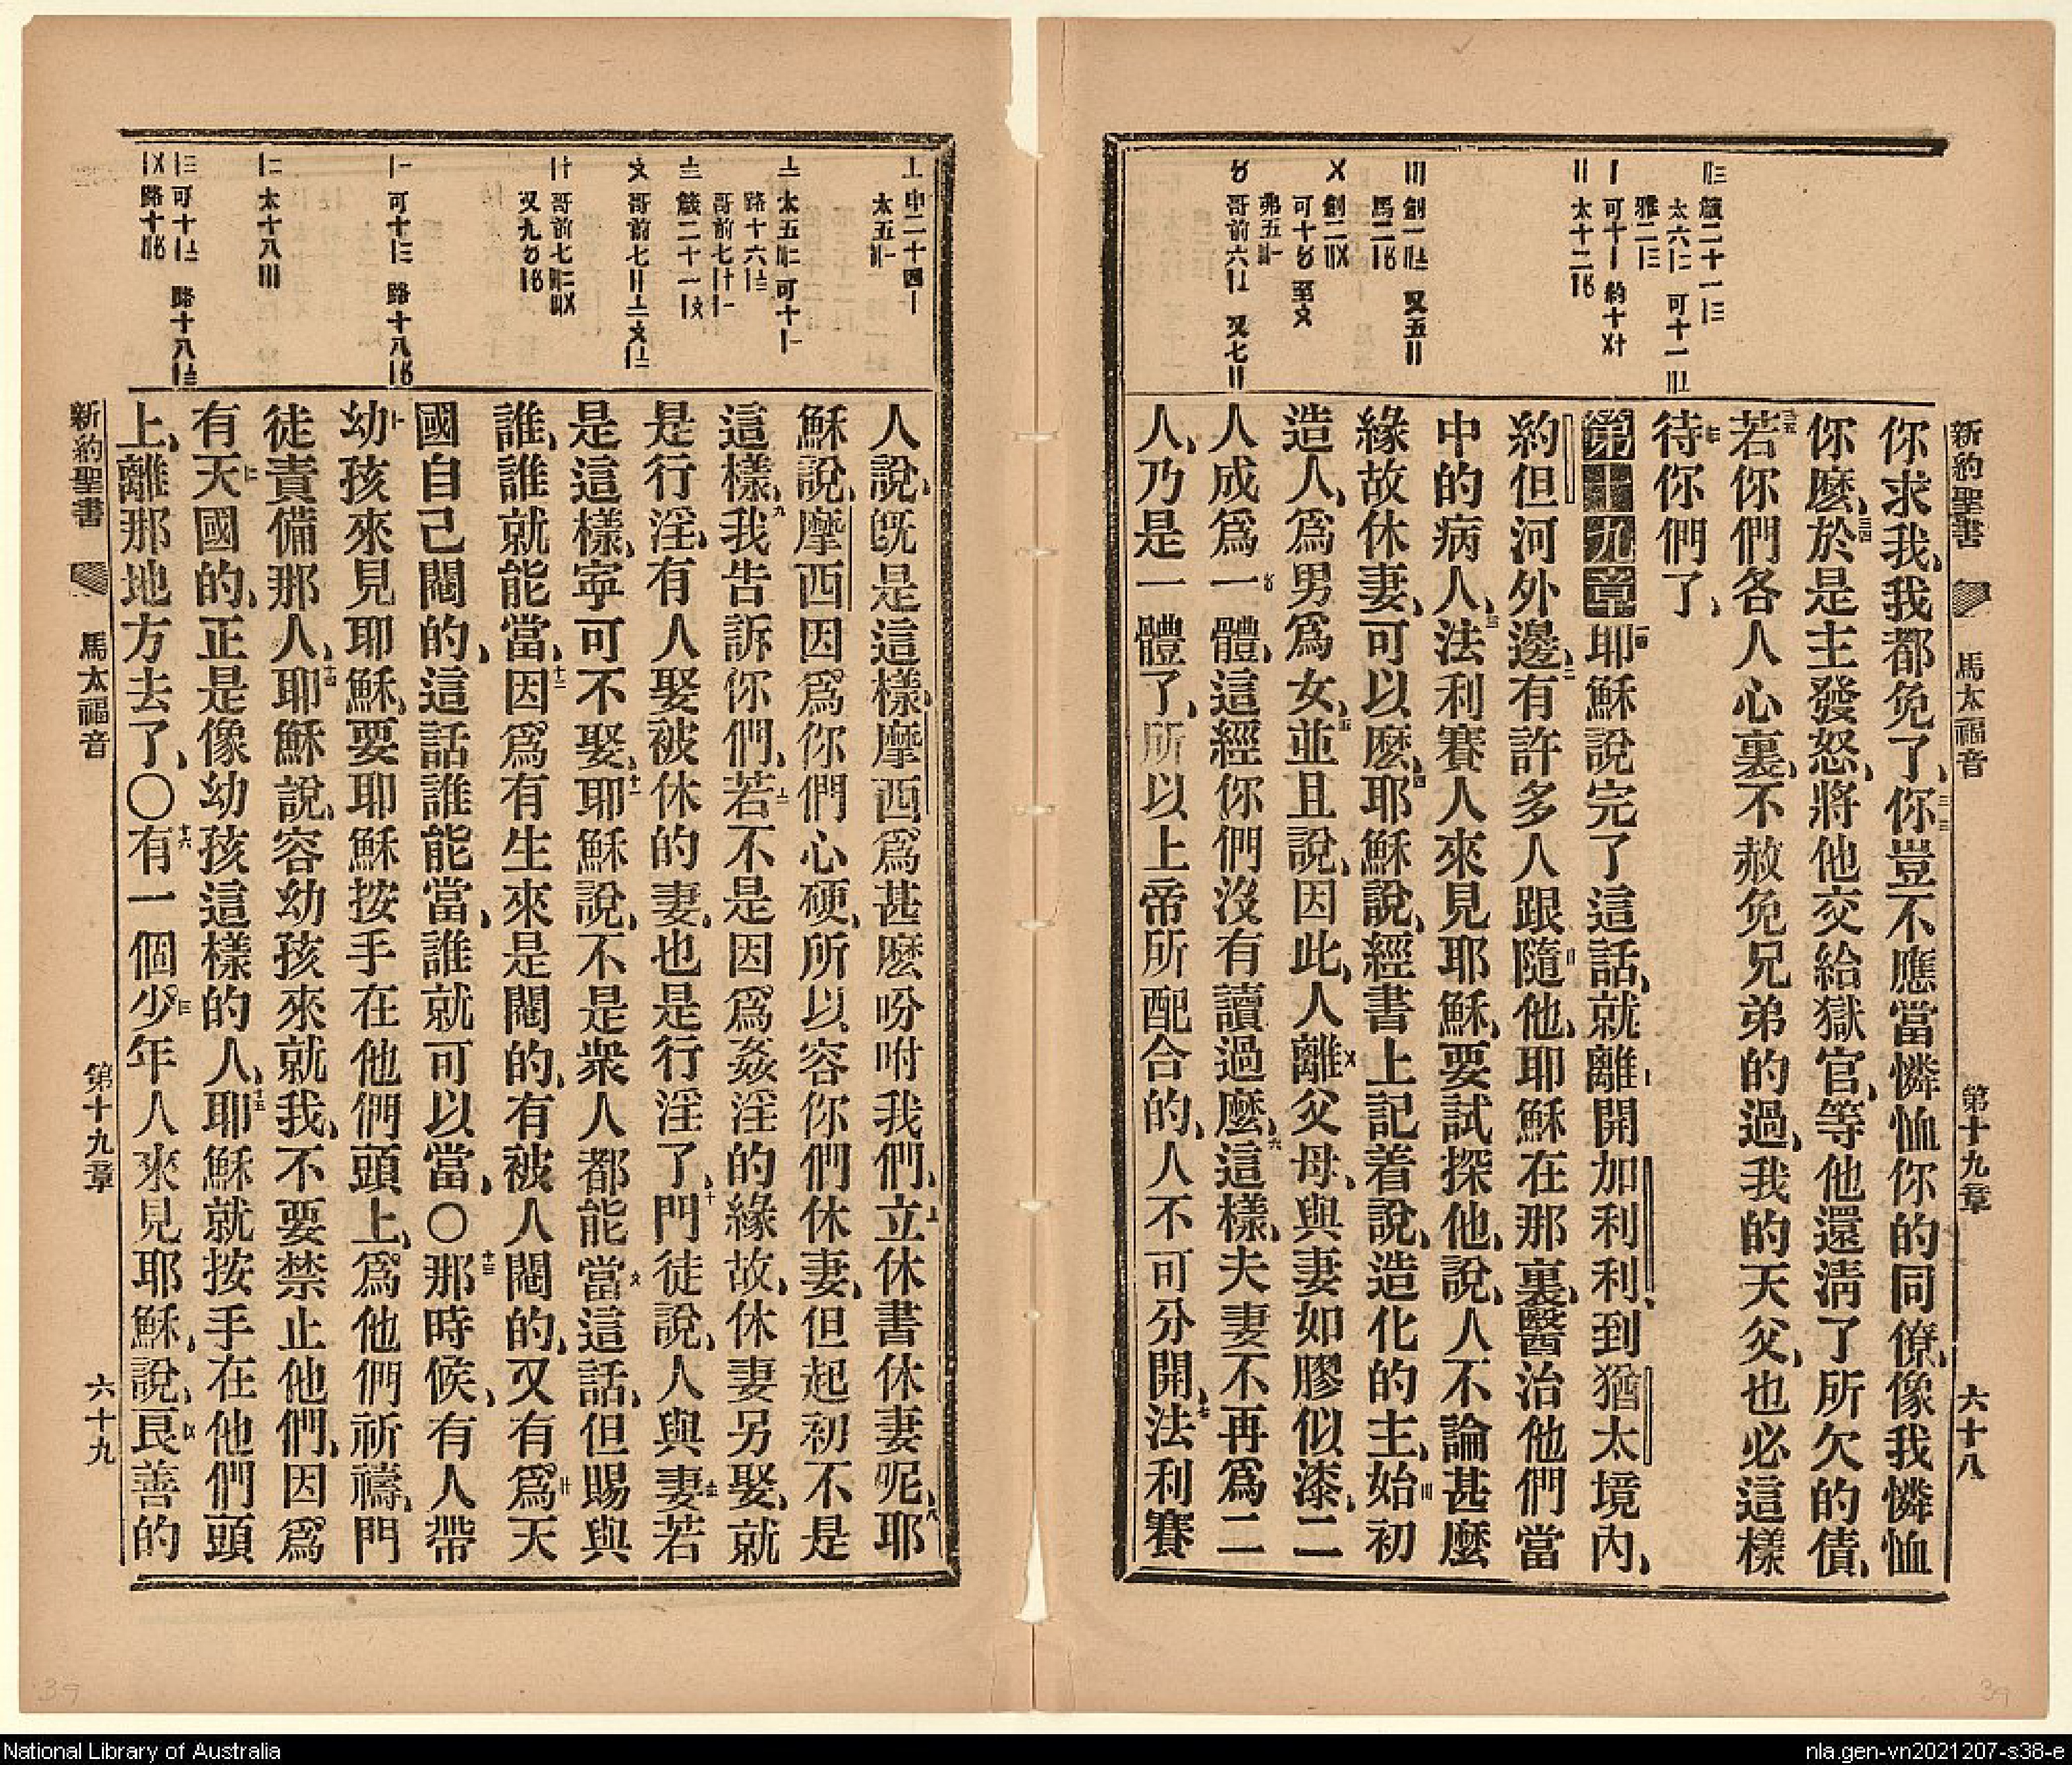 新約聖書 馬太福音 第十九章 六十八
你求我、我都免了、你豈不應當憐恤你的同僚、像我憐恤
你麽、於是主發怒、將他交給獄官、等他還淸了所欠的債、
若你們各人心裏、不赦免兄弟的過、我的天父、也必這樣
待你們了、
第十九章 耶穌說完了這話、就離開加利利、到猶太境內、
約但河外邊、有許多人跟隨他、耶穌在那裏、醫治他們當
中的病人、法利賽人來見耶穌、要試探他、說、人不論甚麽
緣故休妻、可以麽、耶穌說、經書上記着說、造化的主、始初
造人、爲男爲女、並且說、因此、人離父母、與妻如膠似漆、二
人成爲一體、這經你們沒有讀過麽、這樣、夫妻不再爲二
人、乃是一體了、所以上帝所配合的、人不可分開、法利賽
人說、旣是這樣、摩西爲甚麽吩咐我們、立休書休妻呢、耶
穌說、摩西因爲你們心硬、所以容你們休妻、但起初不是
這樣、我告訴你們、若不是因爲姦淫的緣故、休妻另娶、就
是行淫、有人娶被休的妻、也是行淫了、門徒說、人與妻若
是這樣、寧可不娶、耶穌說、不是衆人都能當這話、但賜與
誰、誰就能當、因爲有生來是閹的、有被人閹的、又有爲天
國自己閹的、這話誰能當、誰就可以當、○那時候、有人帶
幼孩來見耶穌、要耶穌按手在他們頭上、爲他們祈禱、門
徒責備那人、耶穌說、容幼孩來就我、不要禁止他們、因爲
有天國的、正是像幼孩這樣的人、耶穌就按手在他們頭
上、離那地方去了、○有一個少年人來見耶穌、說、良善的
新約聖書 馬太福音 第十九章 六十九
National Library of Australia
nla.gen-vn2021207-s38-e